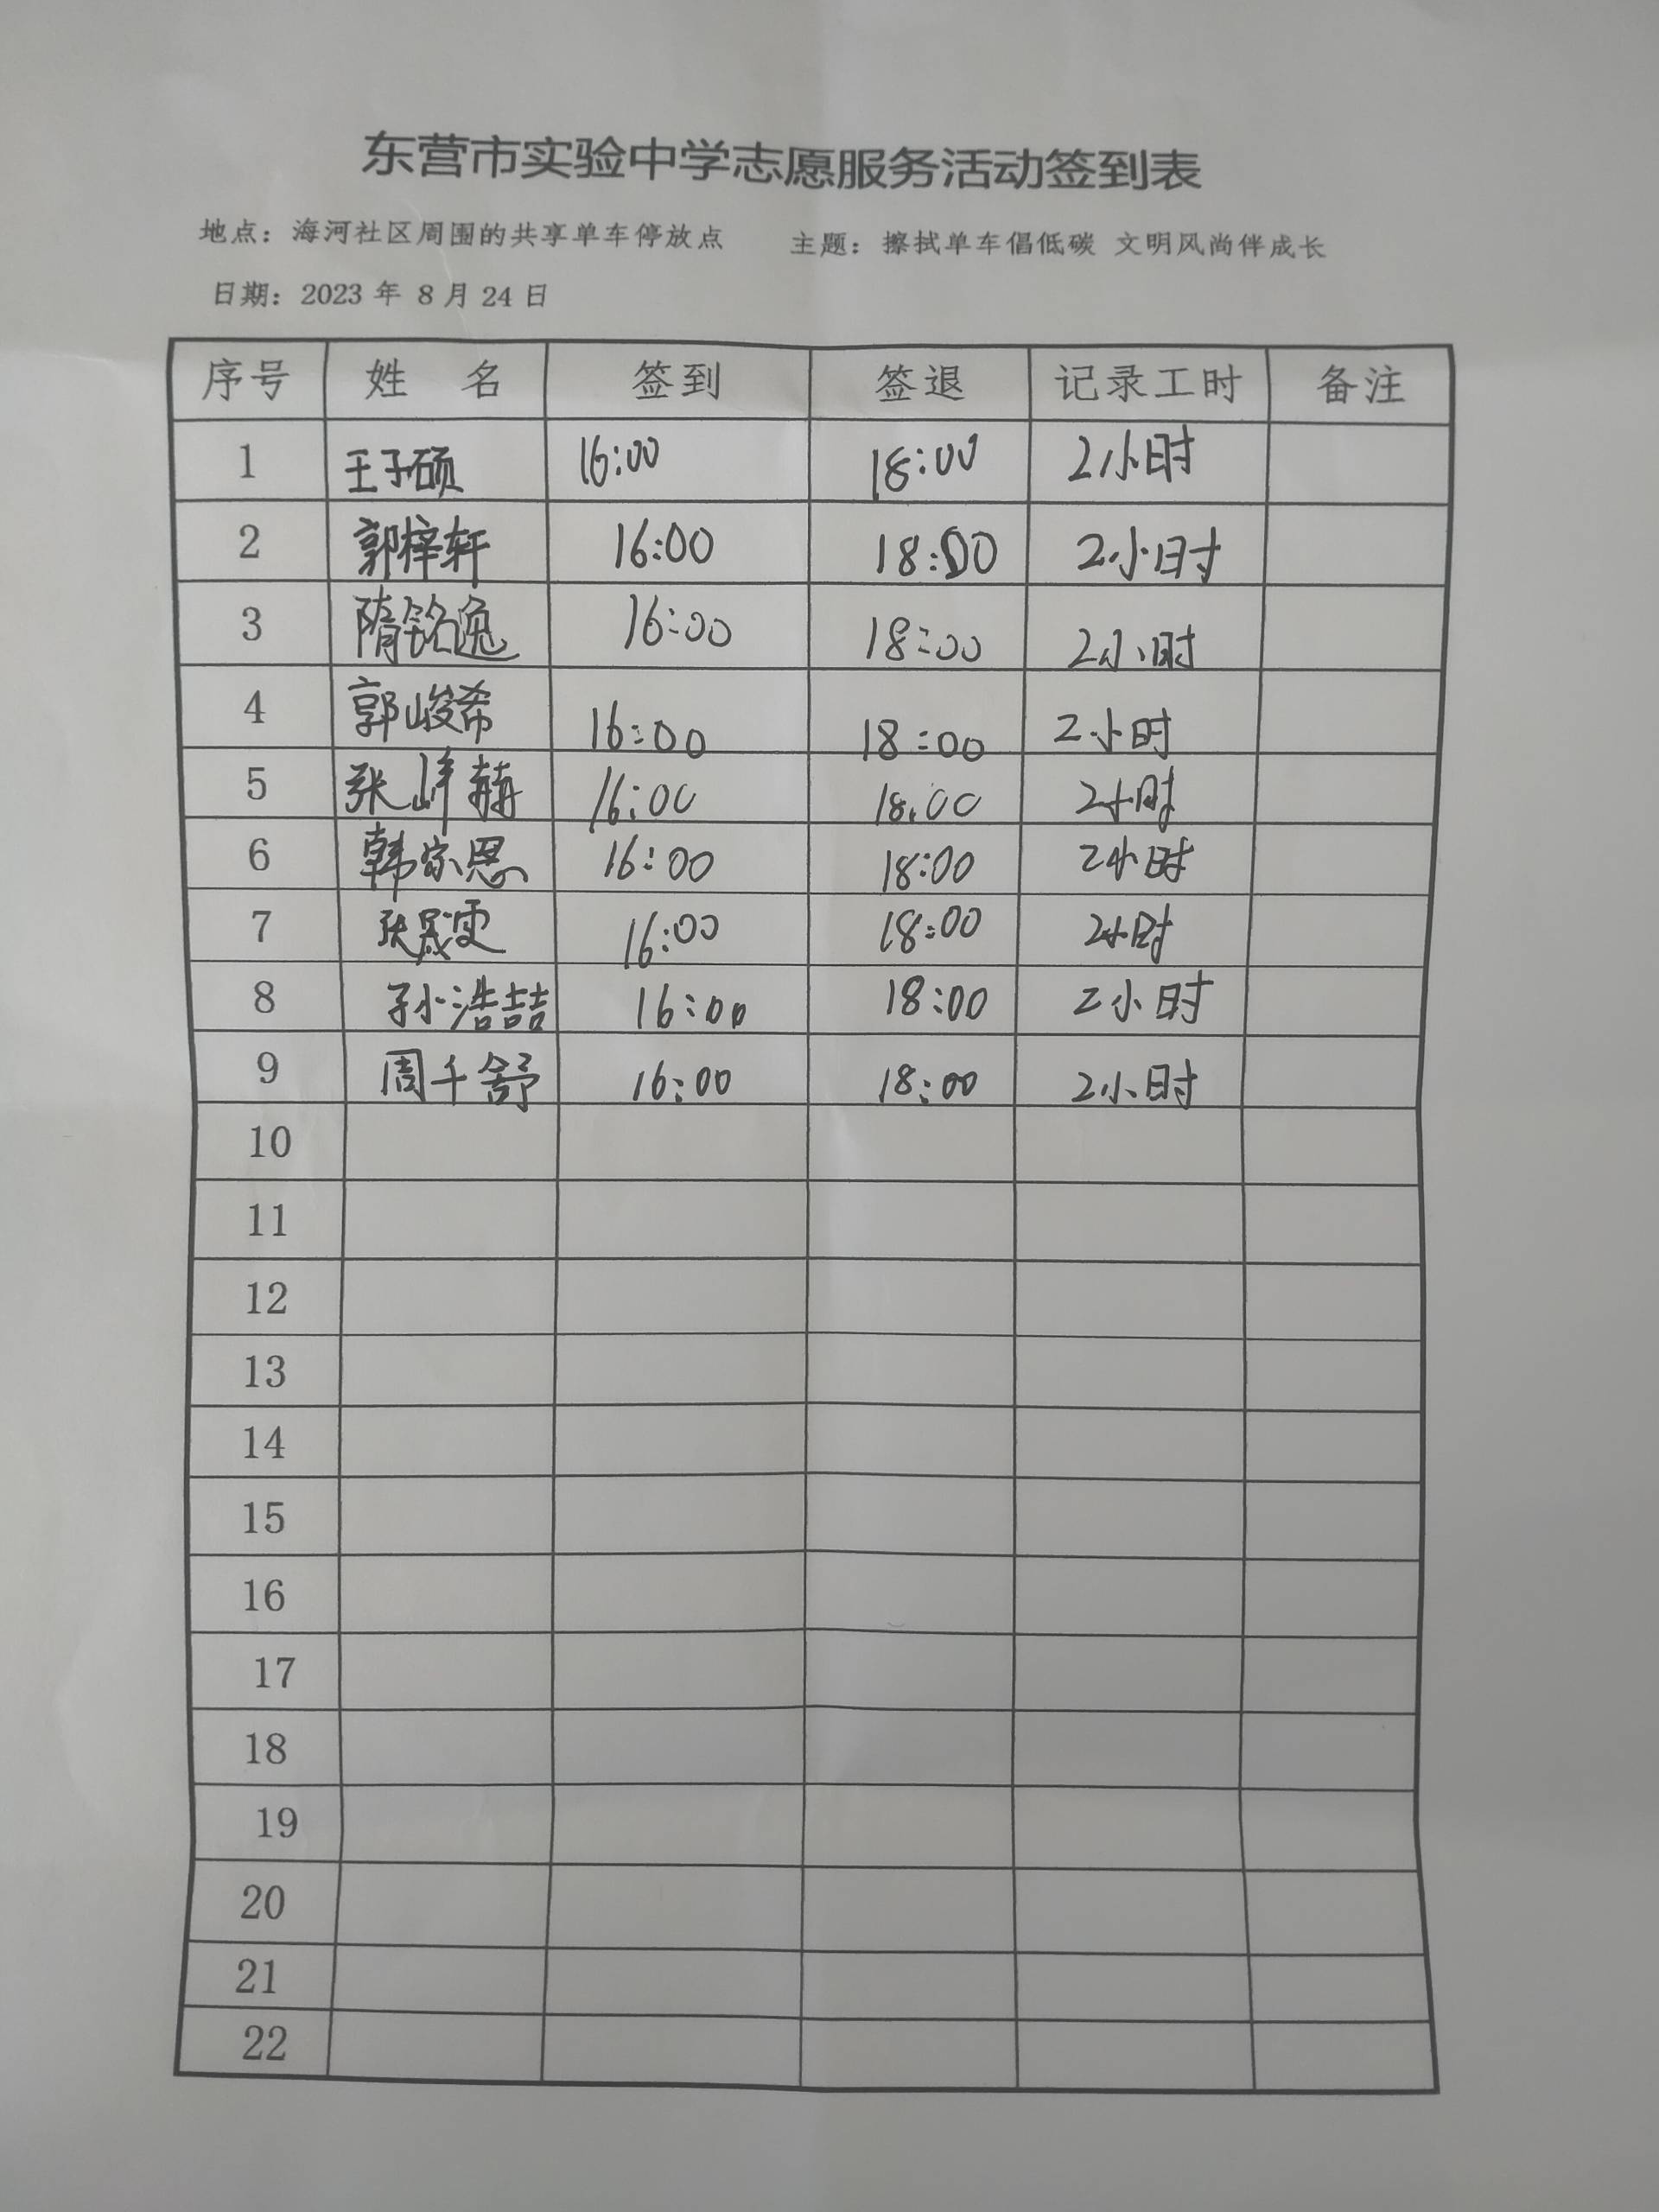 东营市实验中学志愿服务活动签到表
地点：海河社区周围的共享单车停放点 主题：擦拭单车倡低碳 文明风尚伴成长
日期：2023 年 8 月 24 日
序号 姓 名 签到 签退 记录工时 备注
1 王子硕 16:00 18:00 2小时
2 郭梓轩 16:00 18:00 2小时
3 隋铭逸 16:00 18:00 2小时
4 郭峻希 16:00 18:00 2小时
5 张峰 16:00 18:00 2小时
6 韩宗恩 16:00 18:00 2小时
7 张晟雯 16:00 18:00 2小时
8 孙浩喆 16:00 18:00 2小时
9 周千舒 16:00 18:00 2小时
10
11
12
13
14
15
16
17
18
19
20
21
22